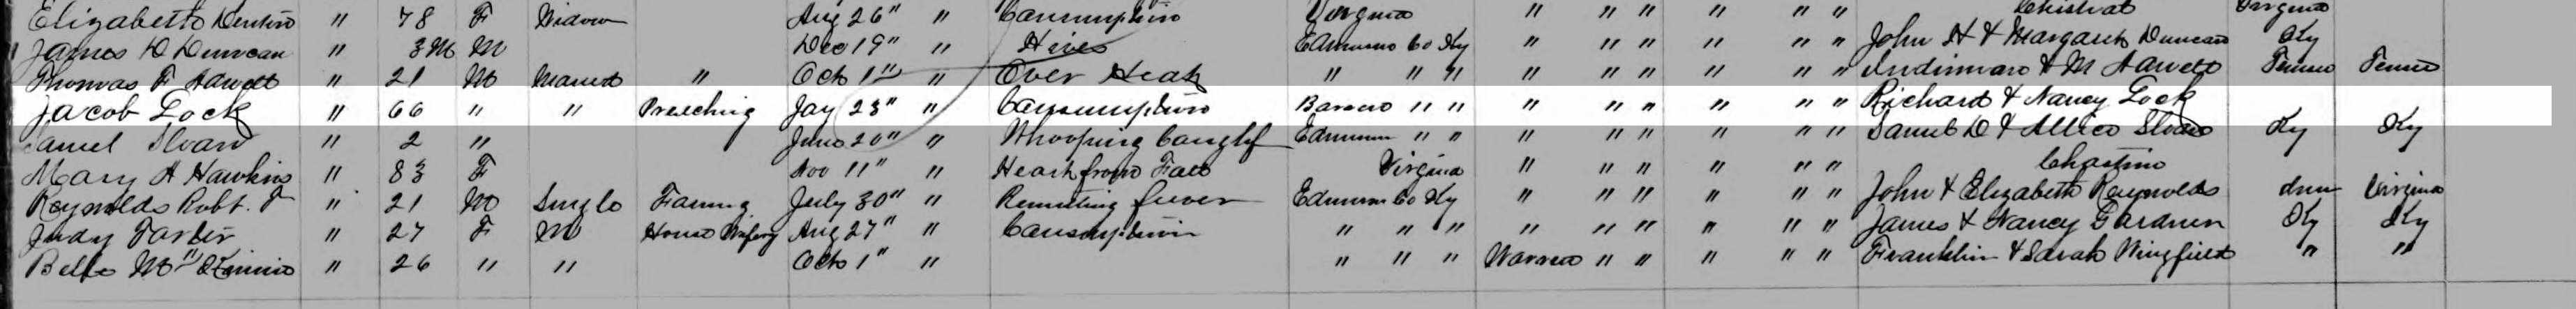 Elizabeth Denton " 78 F Widow Aug 26" " Consumption Virginia " " " " " " Chistrat Virginia
James D Duncan " 3M M Dec 19" " Hives Edmonson Co Ky " " " " " " John H & Margaret Duncan Ky
Thomas F " 21 M Married " Oct 1" " Over Heat " " " " " " " " " & M Tenne Tenne
Jacob Lock " 66 " " Preeching Jay 23" " Consumption Barren " " " " " " " " Richard & Nancy Lock
Samuel Sloan " 2 " June 20" " Whooping Caughf Edmonson " " " " " " " " Samuel D & Allice Sloan Ky Ky
Mary A Hawkins " 83 F Nov 11" " Heart from Fall Virginia " " " " " " Chastine
Reynolds Robt. " 21 M Single Farming July 30" " Remitting fever Edmonson Co Ky " " " " " " John & Elizabeth Reynolds Virginia
Judy " 27 F M House Wifery Aug 27" " Consumption " " " " " " " " " James & Nancy Gardner Ky Ky
Belle " 26 " " Oct 1" " " " " Warren " " " " " Franklin & Sarah Wingfield " "